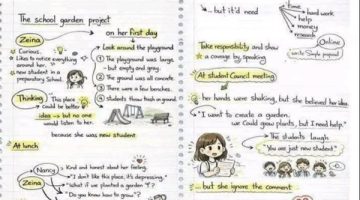 The school garden project
on her first day
Zeina
Curious.
Likes to notice everything around her.
new student in a preparatory School.
Look around the playground
1 The playground was large - but empty and gray.
2 The ground was all concrete.
3 There were a few benches.
4 Students throw trash on ground.
Thinking
This place could be better
idea → but no one would listen to her.
because she was new student
At lunch
Nancy
Kind and honest about her feeling.
"I don't like this place, it's depressing."
Zeina
"What if we planted a garden?"
"Do you know how to grow."
... but it'd need
time
hard work
help
money
research
Online
Take responsibility and show a courage by speaking
write Simple proposal
At student Council meeting
her hands were shaking, but she believed her idea.
"I want to create a garden.
we could grow plants, but I need help".
The students laugh
"You are just new student"
... but she ignore the comment